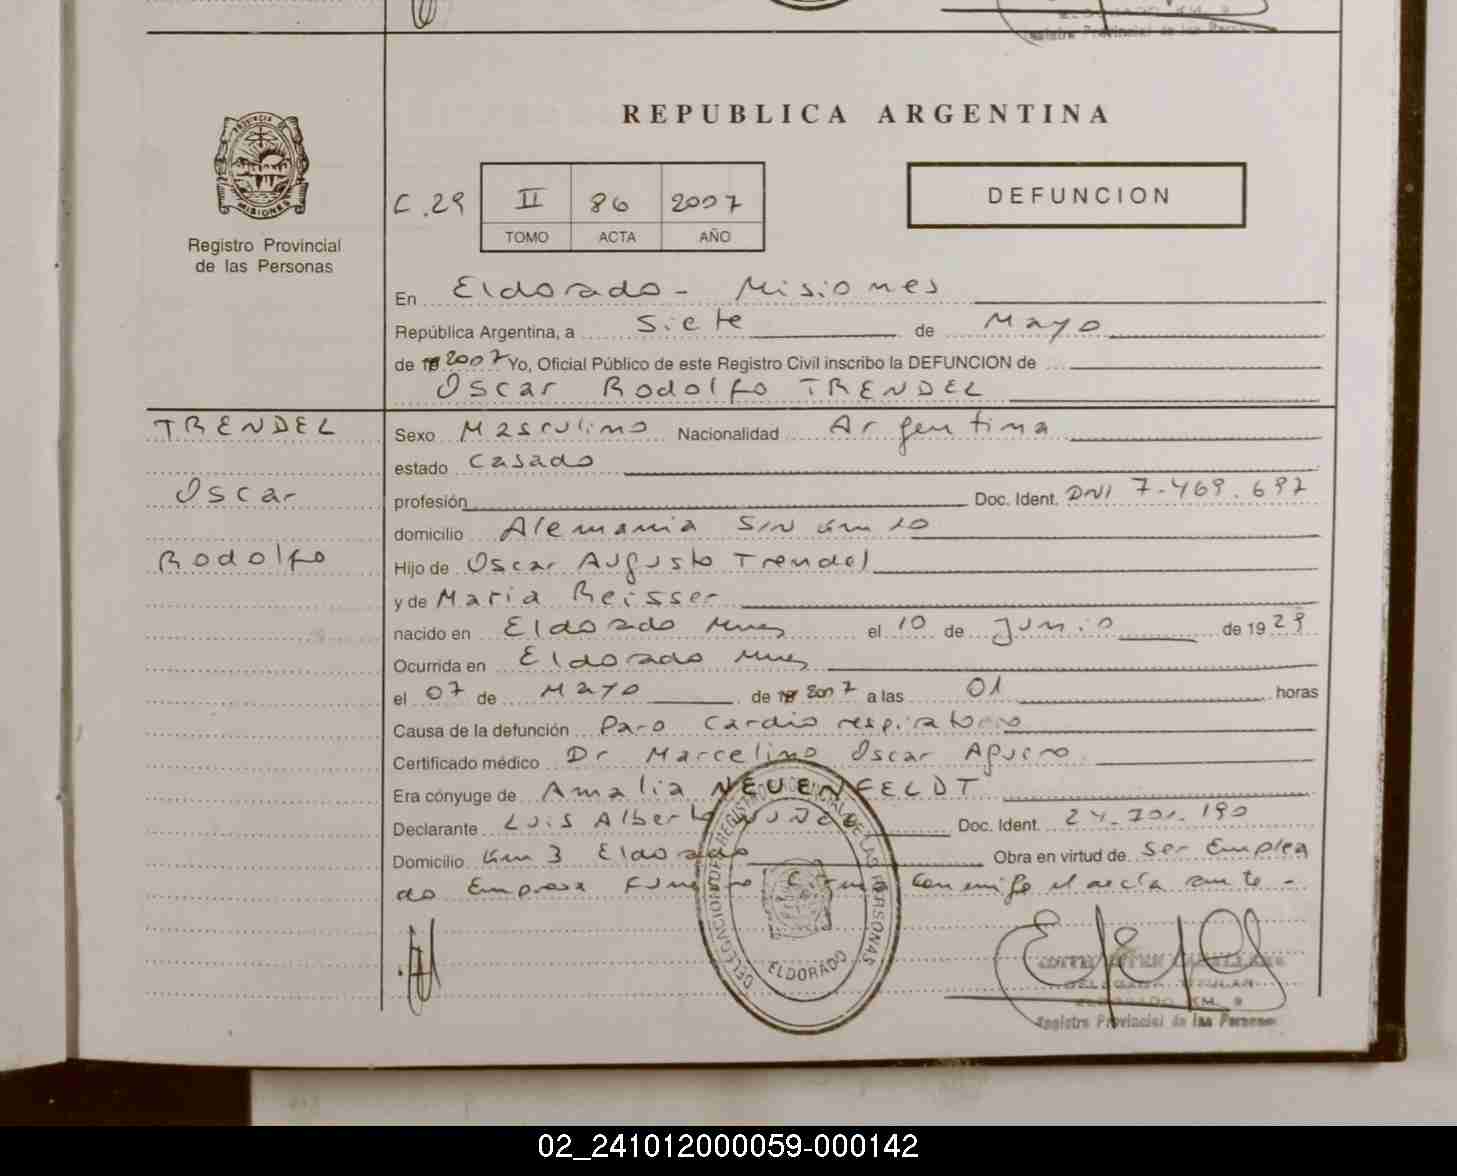 Registro Provincial de las Personas
REPUBLICA ARGENTINA
PROVINCIA DE
MISIONES
Registro Provincial
de las Personas
C.29 II 86 2007
TOMO ACTA AÑO
DEFUNCION
En Eldorado - Misiones
República Argentina, a Siete de Mayo
de 2007 Yo, Oficial Público de este Registro Civil inscribo la DEFUNCION de
Oscar Rodolfo TRENDEL
TRENDEL
Oscar
Rodolfo
Sexo Masculino Nacionalidad Argentina
estado Casado
profesión Doc. Ident. DNI 7.469.697
domicilio Alemania S/N Km 10
Hijo de Oscar Augusto Trendel
y de Maria Reisser
nacido en Eldorado Mnes el 10 de Junio de 1929
Ocurrida en Eldorado Mnes
el 07 de Mayo de 2007 a las 01 horas
Causa de la defunción Paro Cardio respiratorio
Certificado médico Dr Marcelino Oscar Aguero
Era cónyuge de Amalia NEUENFELDT
Declarante Luis Alberto NUÑEZ Doc. Ident. 24.701.190
Domicilio Km 3 Eldorado Obra en virtud de Ser Emplea
do Empresa conmigo el acta ante -
DELEGACION DEL REGISTRO PROVINCIAL DE LAS PERSONAS
ELDORADO
DELEGADA TITULAR
ELDORADO KM. 9
Registro Provincial de las Personas
02_241012000059-000142